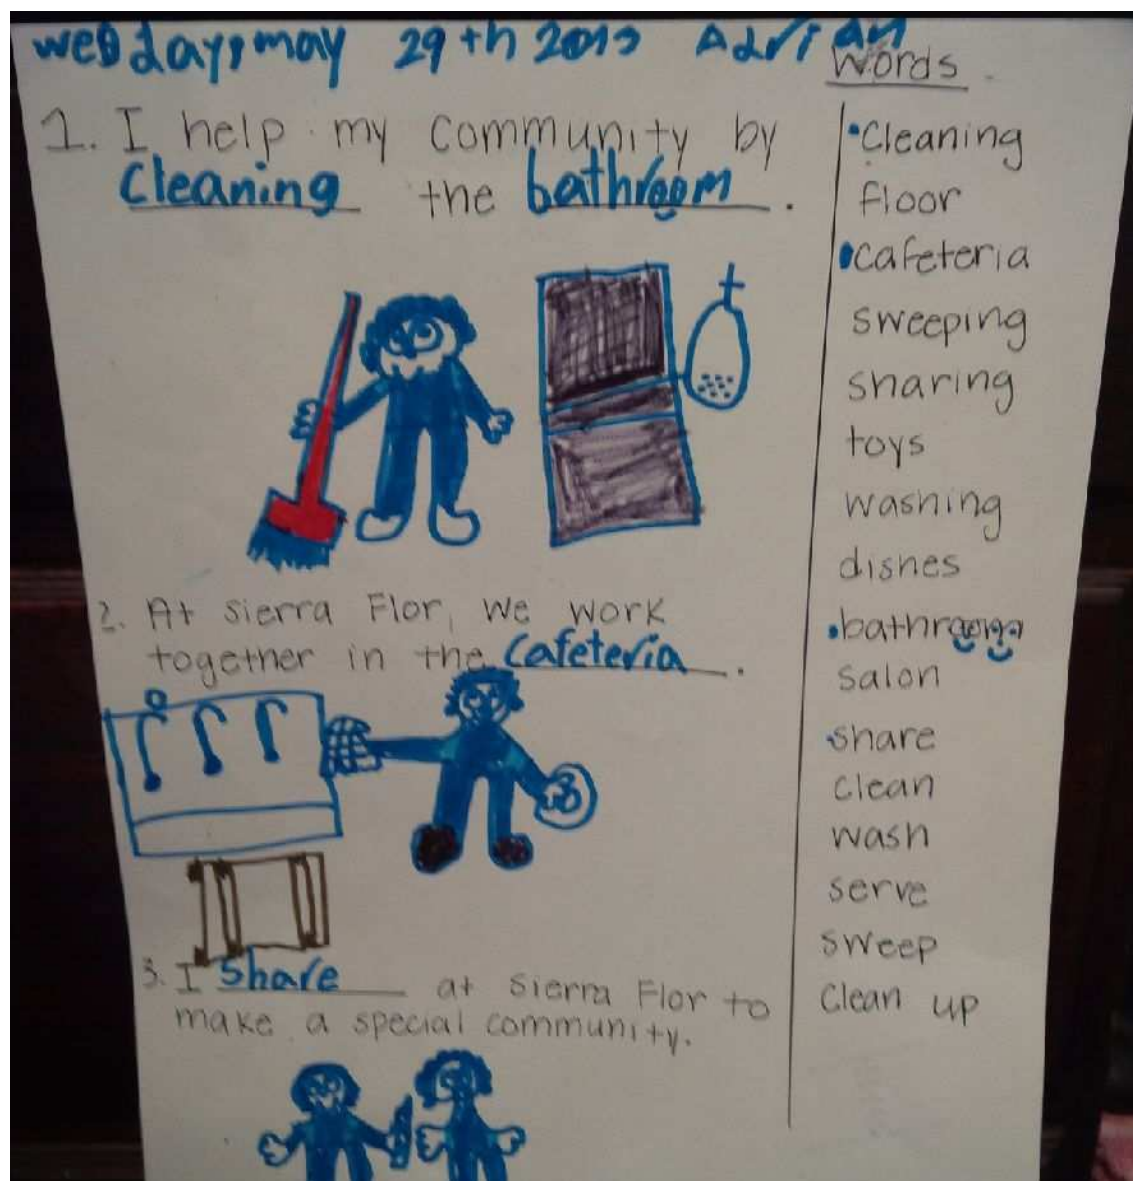 wedday, may 29th 2013 Adrian
1. I help my community by
Cleaning the bathroom.
2. At Sierra Flor, we work
together in the Cafeteria.
3. I Share at Sierra Flor to
make a special community.
Words
Cleaning
floor
cafeteria
sweeping
sharing
toys
washing
dishes
bathroom
salon
share
clean
wash
serve
sweep
Clean up